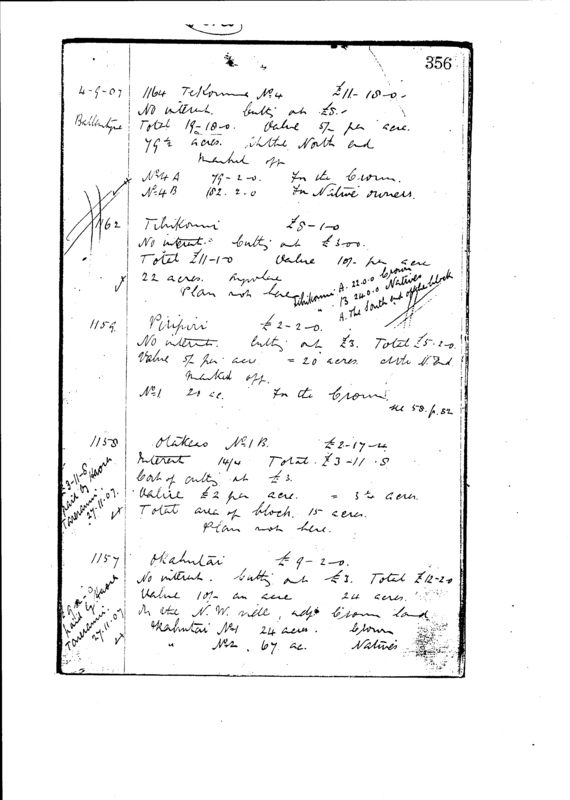 356
4-9-07 1164 TeKomma No 4 £11-18-0.
Ballantyne No interest. Cutting out £8.-
Total 19-18-0. Value 5/- per acre.
79½ acres. at the North end
marked off
No 4A 79-2-0. For the Crown.
No 4B 182.2-0 For Native owners.
1162 Tihikomui £8-1-0
No interest. Cutting out £3-0-0.
Total £11-1-0 Value 10/- per acre
22 acres. anywhere
Plan not here
Tihikomui A. 22.0.0 Crown
" B 240.0 Natives
A. The South end of the block
1159 Piripiri £2-2-0.
No interest. Cutting out £3. Total £5.2.0.
Value 5/- per acre = 20 acres. at the N. End
marked off.
No 1 20 ac. For the Crown.
see 58.p.82
1158 Otakeao No 1B. £2-17-4
Interest 14/4 Total £3-11.8
Cost of cutting out £3.
Value £2 per acre. = 3½ acres.
Total area of block 15 acres.
Plan not here.
£3-11-8
paid by
27.11.07.
1157 Okahutai £9-2-0.
No interest. Cutting out £3. Total £12-2-0
Value 10/- an acre 24 acres.
On the N.W. side, adjg Crown land
Okahutai No 1 24 acres. Crown
" No 2. 67 ac. Natives
paid by
27.11.07